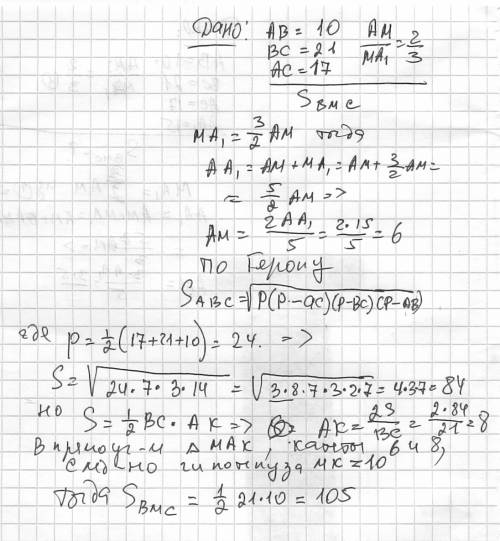 Дано: AB = 10 AM/MA₁ = 2/3
BC = 21
AC = 17
S BMC
MA₁ = 3/2 AM тогда
AA₁ = AM + MA₁ = AM + 3/2 AM =
= 5/2 AM =>
AM = 2AA₁/5 = 2·15/5 = 6
По Герону
S ABC = √P(P-ac)(P-BC)(P-AB)
где p = 1/2 (17+21+10) = 24. =>
S = √24·7·3·14 = √3·8·7·3·2·7 = 4·3·7 = 84
но S = 1/2 BC · AK => AK = 2S/BC = 2·84/21 = 8
В прямоуг-м Δ MAK, катты 6 и 8,
След-но гипотнуза MK = 10
Тогда S BMC = 1/2 21·10 = 105